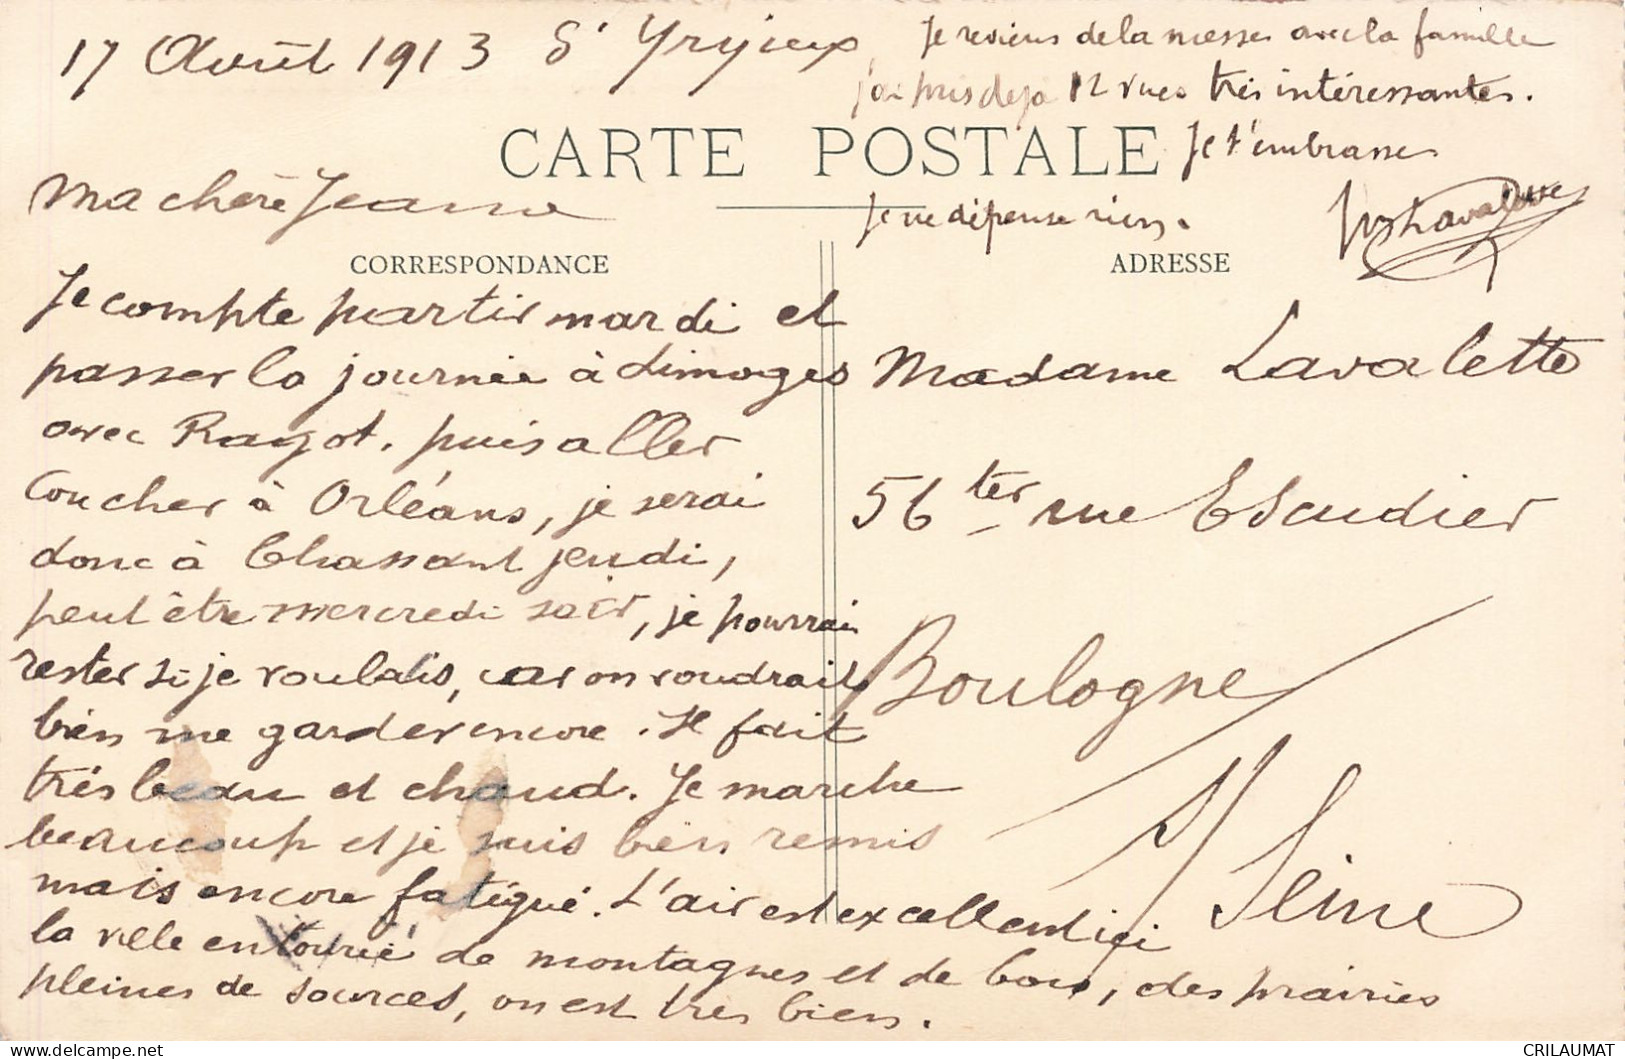 17 Août 1913 St Yrieix
Je reviens de la messe avec la famille
j'ai pris deja 12 vues très intéressantes.
Je t'embrasse
Je ne dépense rien.
Lavalette
CARTE POSTALE
CORRESPONDANCE
ADRESSE
Ma chère Jeanne
Je compte partir mardi et
passer la journée à Limoges
avec Ragot. puis aller
Coucher à Orléans, je serai
donc à Chassant jeudi,
peut être mercredi soir, je pourrai
rester si je voulais, car on voudrait
bien me garder encore. Il fait
très beau et chaud. Je marche
beaucoup et je suis bien remis
mais encore fatigué. L'air est excellent ici
la ville entourée de montagnes et de bois, des prairies
pleines de sources, on est très bien.
Madame Lavalette
56 ter rue Escudier
Boulogne
s/ Seine
CRILAUMAT